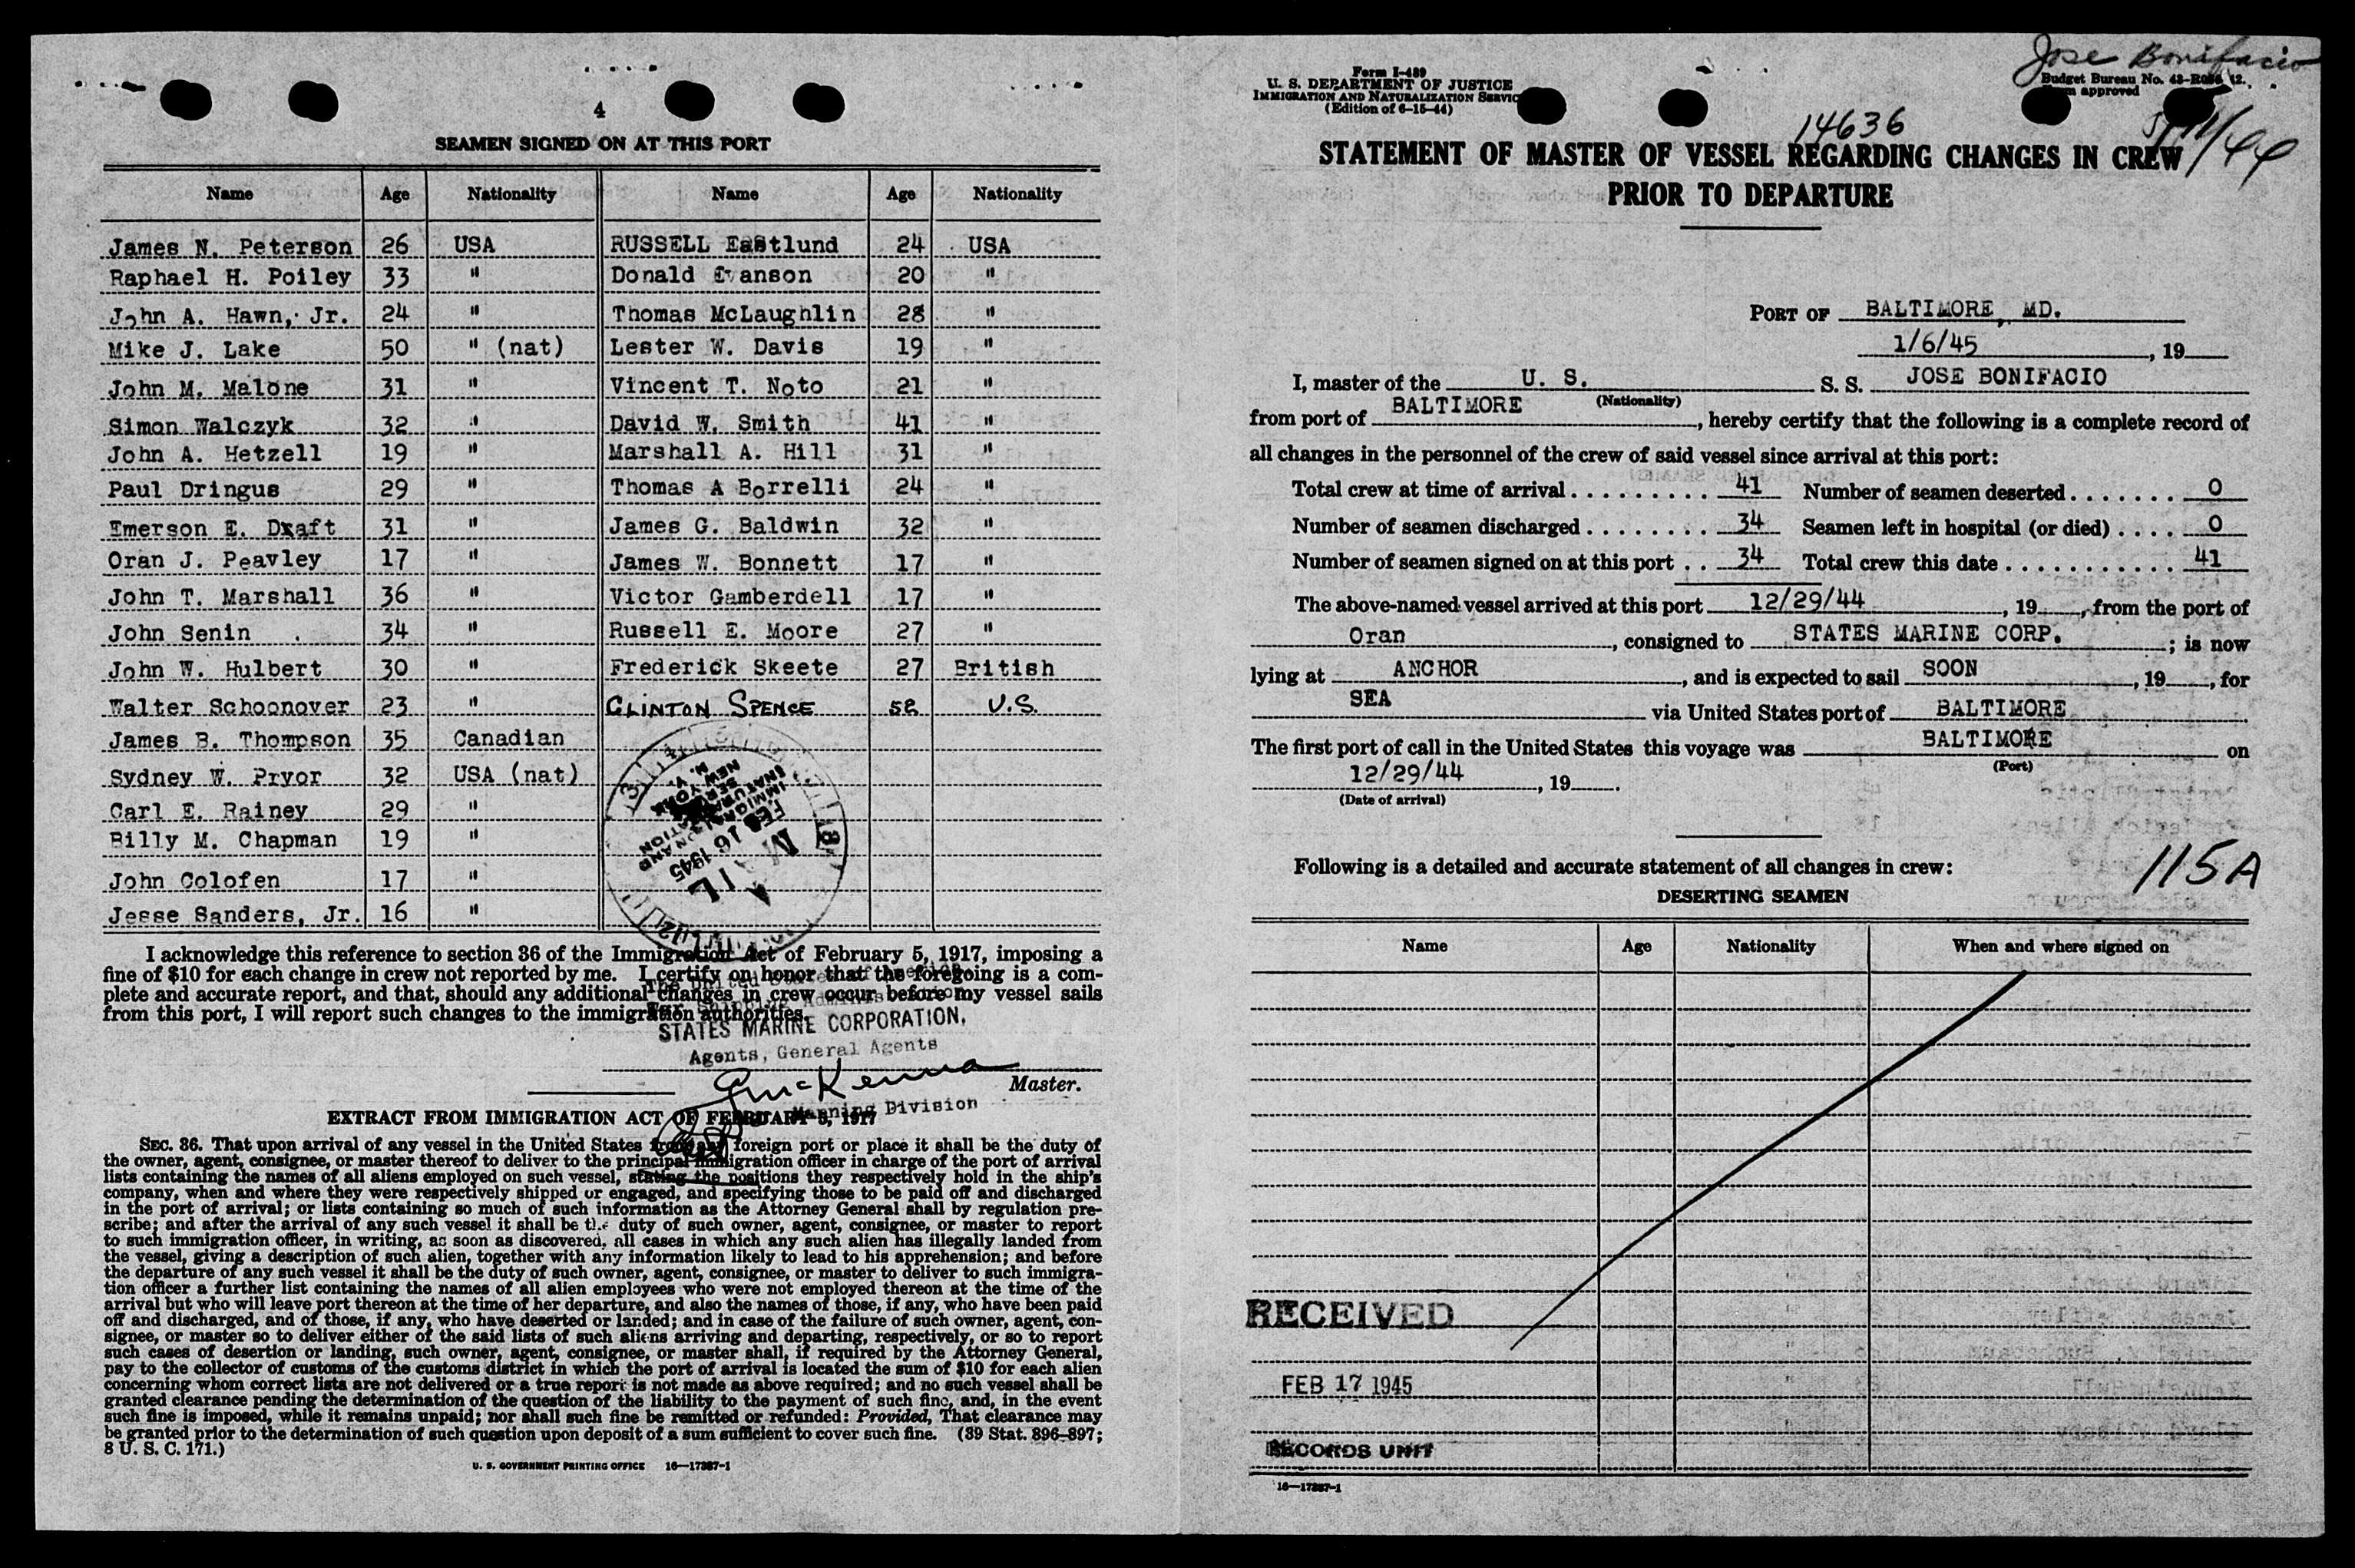 4
SEAMEN SIGNED ON AT THIS PORT
Name Age Nationality Name Age Nationality
James N. Peterson 26 USA RUSSELL Eastlund 24 USA
Raphael H. Poiley 33 " Donald Evanson 20 "
John A. Hawn, Jr. 24 " Thomas McLaughlin 28 "
Mike J. Lake 50 " (nat) Lester W. Davis 19 "
John M. Malone 31 " Vincent T. Noto 21 "
Simon Walczyk 32 " David W. Smith 41 "
John A. Hetzell 19 " Marshall A. Hill 31 "
Paul Dringus 29 " Thomas A Borrelli 24 "
Emerson E. Draft 31 " James G. Baldwin 32 "
Oran J. Peavley 17 " James W. Bonnett 17 "
John T. Marshall 36 " Victor Gamberdell 17 "
John Senin 34 " Russell E. Moore 27 "
John W. Hulbert 30 " Frederick Skeete 27 British
Walter Schoonover 23 " CLINTON SPENCE 52 U.S.
James B. Thompson 35 Canadian
Sydney W. Pryor 32 USA (nat)
Carl E. Rainey 29 "
Billy M. Chapman 19 "
John Colofen 17 "
Jesse Sanders, Jr. 16 "
IMMIGRATION AND
NATURALIZATION
SERVICE
NEW YORK
N. Y.
FEB 16 1945
MAIL
I acknowledge this reference to section 36 of the Immigration Act of February 5, 1917, imposing a
fine of $10 for each change in crew not reported by me. I certify on honor that the foregoing is a com-
plete and accurate report, and that, should any additional changes in crew occur before my vessel sails
from this port, I will report such changes to the immigration authorities.
The United States of America
War Shipping Administration
STATES MARINE CORPORATION,
Agents, General Agents
McKenna Master.
Manning Division
EXTRACT FROM IMMIGRATION ACT OF FEBRUARY 5, 1917
SEC. 36. That upon arrival of any vessel in the United States from any foreign port or place it shall be the duty of
the owner, agent, consignee, or master thereof to deliver to the principal immigration officer in charge of the port of arrival
lists containing the names of all aliens employed on such vessel, stating the positions they respectively hold in the ship's
company, when and where they were respectively shipped or engaged, and specifying those to be paid off and discharged
in the port of arrival; or lists containing so much of such information as the Attorney General shall by regulation pre-
scribe; and after the arrival of any such vessel it shall be the duty of such owner, agent, consignee, or master to report
to such immigration officer, in writing, as soon as discovered, all cases in which any such alien has illegally landed from
the vessel, giving a description of such alien, together with any information likely to lead to his apprehension; and before
the departure of any such vessel it shall be the duty of such owner, agent, consignee, or master to deliver to such immigra-
tion officer a further list containing the names of all alien employees who were not employed thereon at the time of the
arrival but who will leave port thereon at the time of her departure, and also the names of those, if any, who have been paid
off and discharged, and of those, if any, who have deserted or landed; and in case of the failure of such owner, agent, con-
signee, or master so to deliver either of the said lists of such aliens arriving and departing, respectively, or so to report
such cases of desertion or landing, such owner, agent, consignee, or master shall, if required by the Attorney General,
pay to the collector of customs of the customs district in which the port of arrival is located the sum of $10 for each alien
concerning whom correct lists are not delivered or a true report is not made as above required; and no such vessel shall be
granted clearance pending the determination of the question of the liability to the payment of such fine, and, in the event
such fine is imposed, while it remains unpaid; nor shall such fine be remitted or refunded: Provided, That clearance may
be granted prior to the determination of such question upon deposit of a sum sufficient to cover such fine. (39 Stat. 896-897;
8 U. S. C. 171.)
U. S. GOVERNMENT PRINTING OFFICE 16—17387-1
Jose Bonifacio
Form I-489
U. S. DEPARTMENT OF JUSTICE
IMMIGRATION AND NATURALIZATION SERVIC
(Edition of 6-15-44)
Budget Bureau No. 43-R086.12.
approved
14636
STATEMENT OF MASTER OF VESSEL REGARDING CHANGES IN CREW
PRIOR TO DEPARTURE
PORT OF BALTIMORE, MD.
1/6/45, 19
I, master of the U. S. S. S. JOSE BONIFACIO
(Nationality)
from port of BALTIMORE, hereby certify that the following is a complete record of
all changes in the personnel of the crew of said vessel since arrival at this port:
Total crew at time of arrival 41 Number of seamen deserted 0
Number of seamen discharged 34 Seamen left in hospital (or died) 0
Number of seamen signed on at this port 34 Total crew this date 41
The above-named vessel arrived at this port 12/29/44, 19, from the port of
Oran, consigned to STATES MARINE CORP.; is now
lying at ANCHOR, and is expected to sail SOON, 19, for
SEA via United States port of BALTIMORE
The first port of call in the United States this voyage was BALTIMORE on
(Port)
12/29/44, 19.
(Date of arrival)
Following is a detailed and accurate statement of all changes in crew:
115A
DESERTING SEAMEN
Name Age Nationality When and where signed on
RECEIVED
FEB 17 1945
RECORDS UNIT
16—17387-1